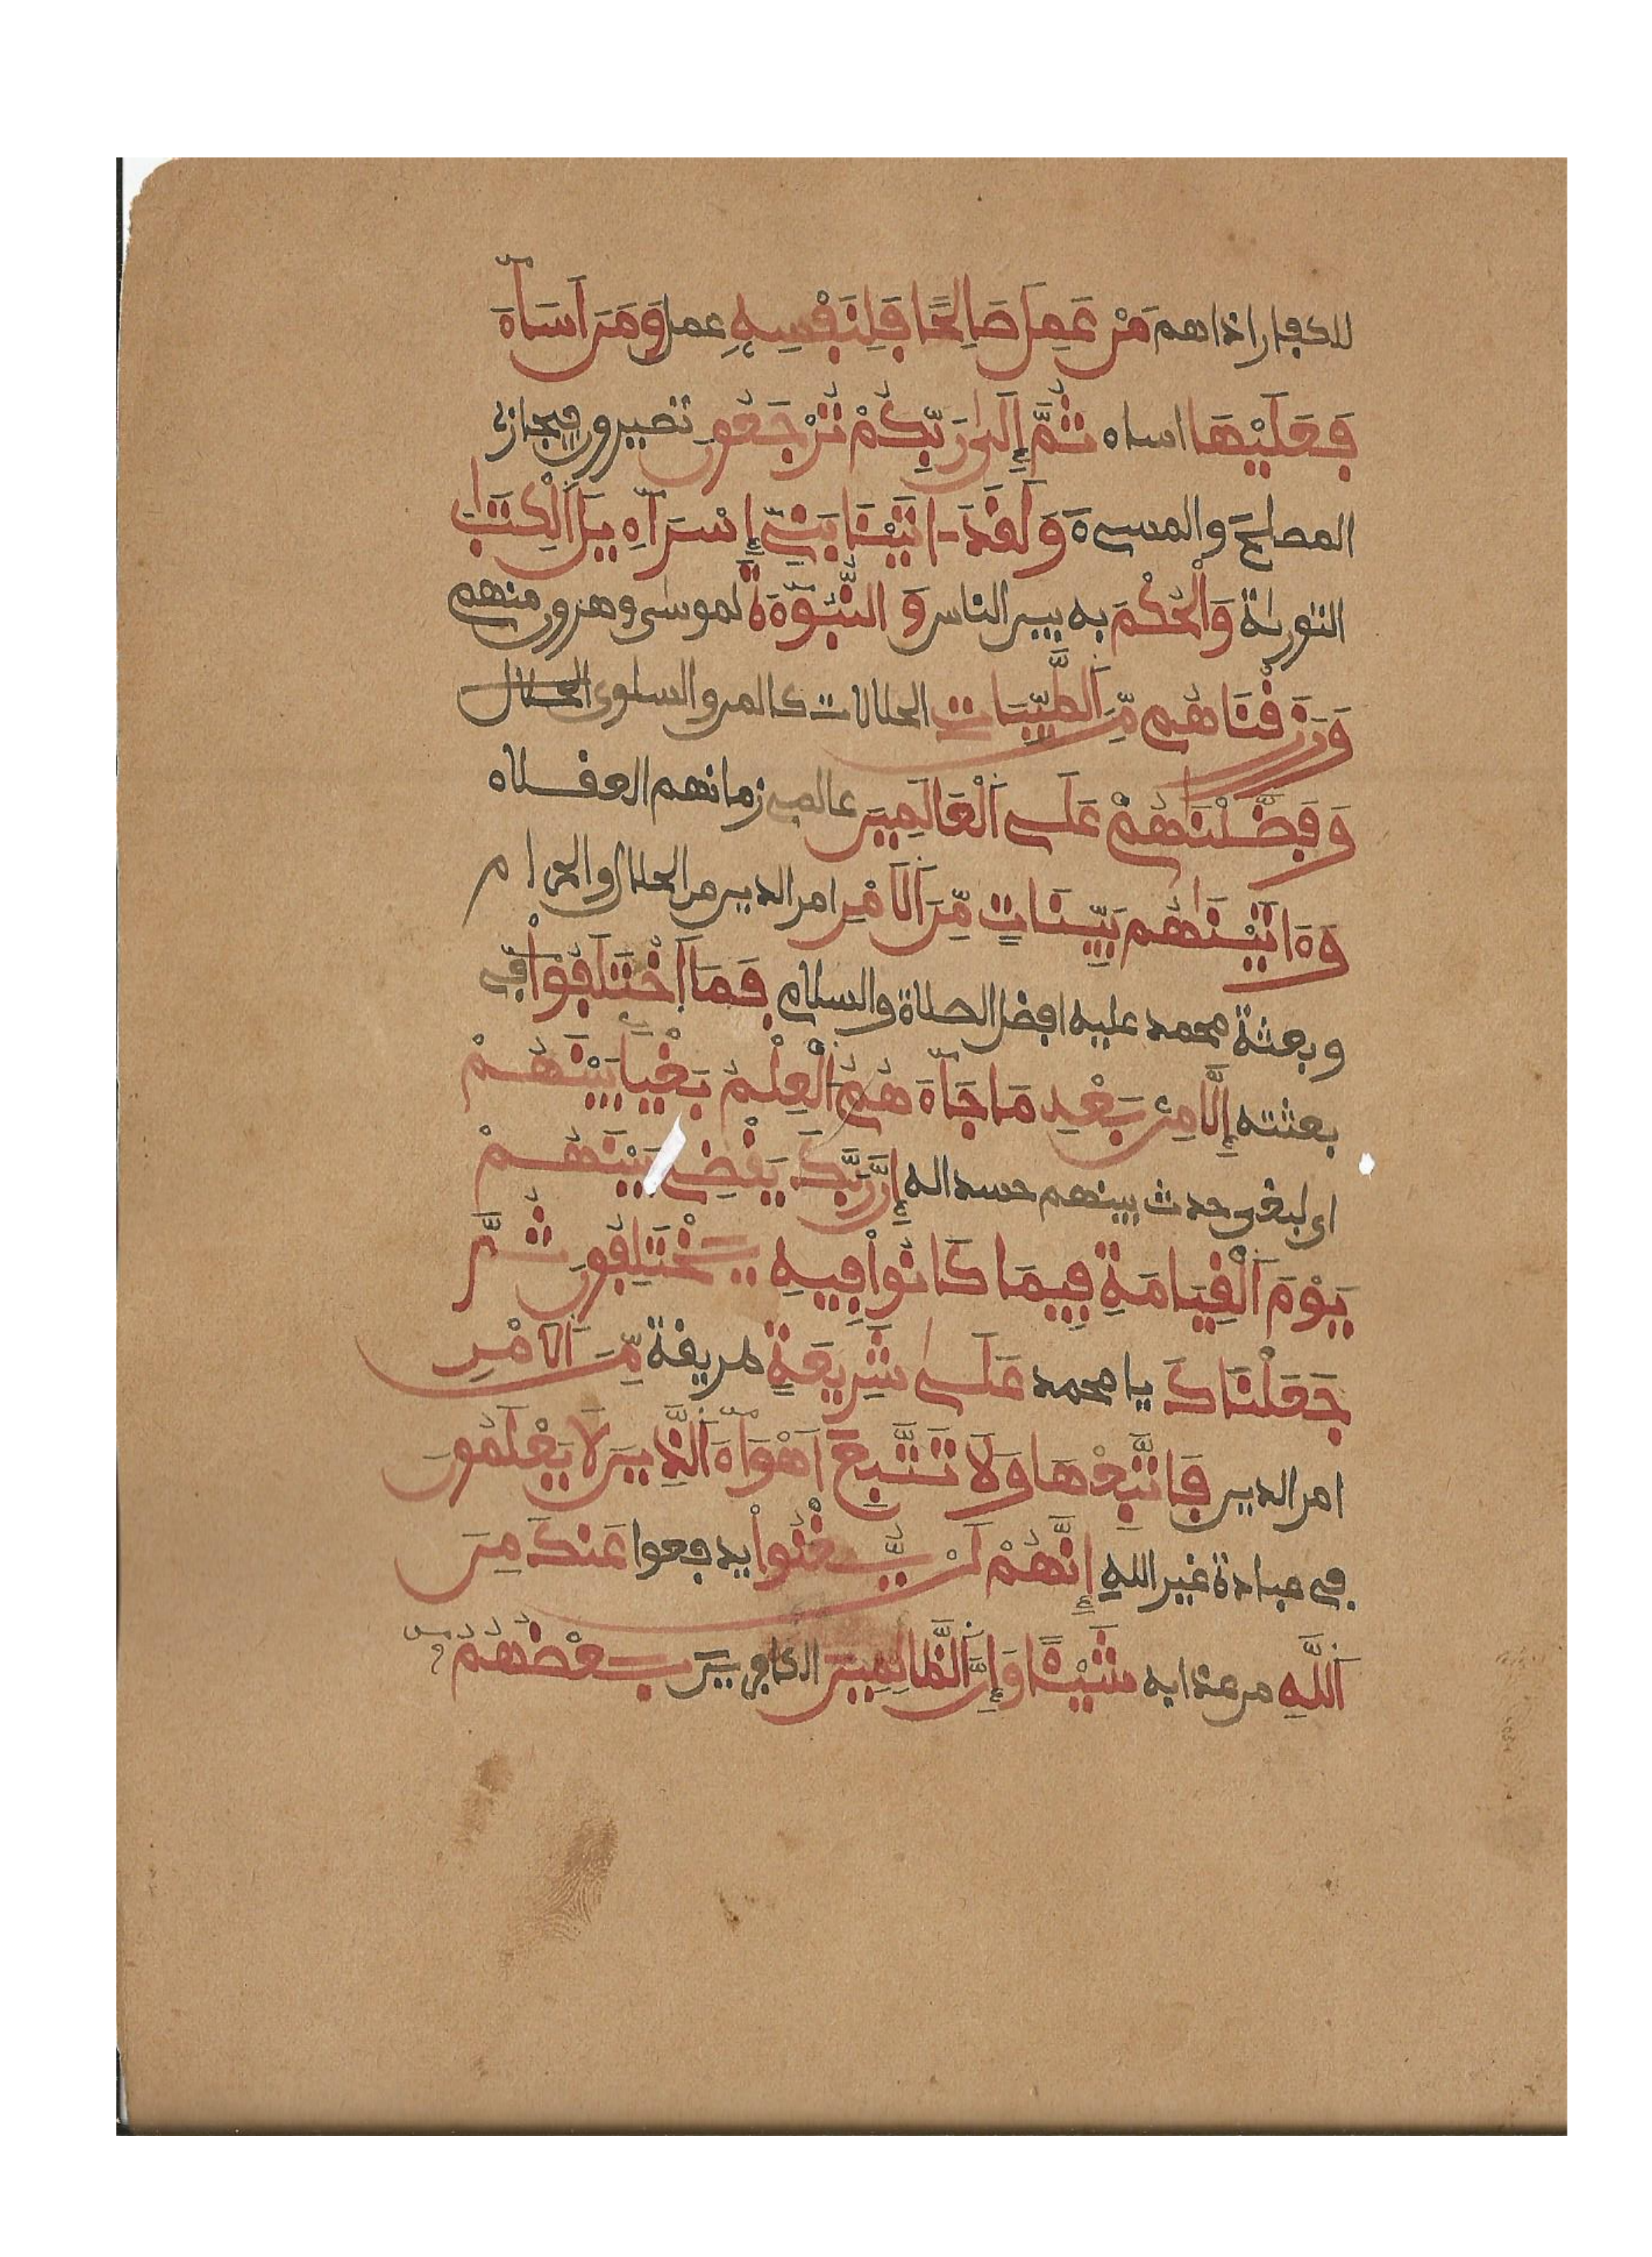 للكفار اذاهم مَنْ عَمِلَ صَالِحًا فَلِنَفْسِهِ عمل وَمَنَ اَسَآءَ
فَعَلَيْهَا اساء ثُمَّ إِلَىٰ رَبِّكُمْ تُرْجَعُونَ تصيرون فيجازى
المصلح والمسىء وَلَقَدَ ـاتَيْنَا بَنِىٓ إِسْرَآءِيلَ اَلْكِتَٰبَ
التورىٰة وَالْحُكْمَ به بين الناس وَالنُّبُوٓءَةَ لموسىٰ وهرون منهم
وَرَزَقْنَاهُم مِّنَ اَلطَّيِّبَاتِ الحلالات كالمن والسلوى الحلال
وَفَضَّلْنَٰهُمْ عَلَى اَلْعَالَمِينَ عالمى زمانهم العقلاء
وَءَاتَيْنَٰهُم بَيِّنَاتٍ مِّنَ اَلَامْرِ امر الدين من الحلال والحرام
وبعثة محمد عليه افضل الصلاة والسلام فَمَا اَخْتَلَفُوٓاْ فى
بعثته إِلَّا مِنۢ بَعْدِ مَا جَآءَهُمُ اَلْعِلْمُ بَغْيَا بَيْنَهُمْ
اى لبغى حدث بينهم حسدا له إِنَّ رَبَّكَ يَقْضِى بَيْنَهُمْ
يَوْمَ اَلْقِيَامَةِ فِيمَا كَانُواْ فِيهِ يَخْتَلِفُونَ ثُمَّ
جَعَلْنَاكَ يا محمد عَلَىٰ شَرِيعَةٍ طريقة مِّنَ اَلَامْرِ
امر الدين فَاتَّبِعْهَا وَلَا تَتَّبِعَ اَهْوَآءَ اَلذِينَ لَا يَعْلَمُونَ
فى عبادة غير الله إِنَّهُمْ لَنْ يُّغْنُواْ يدفعوا عَنكَ مِنَ
اَللَّهِ من عذابه شَيْـًٔا وَإِنَّ اَلظَّالِمِينَ الكافرين بَعْضُهُمُۥٓ